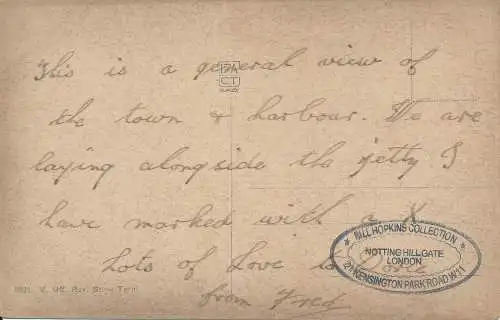 This is a general view of
the town & harbour. We are
laying alongside the jetty I
have marked with a X
Lots of Love to
from Fred
BILL HOPKINS COLLECTION
NOTTING HILL GATE
LONDON
KENSINGTON PARK ROAD W11